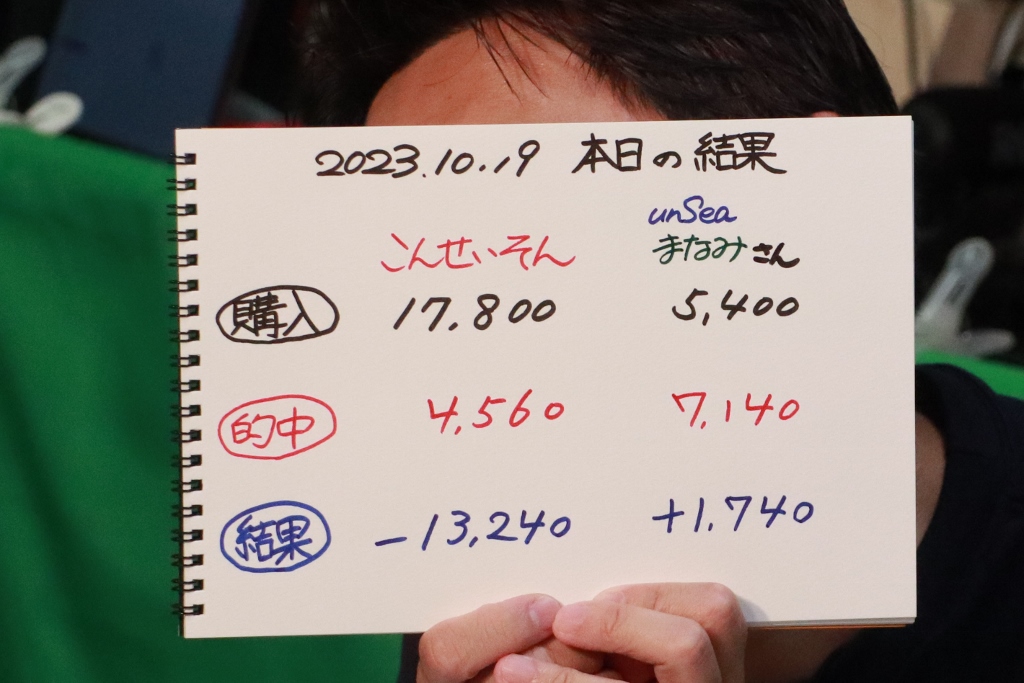 2023.10.19 本日の結果
unSea
こんせいそん まなみさん
購入 17,800 5,400
的中 4,560 7,140
結果 -13,240 +1,740